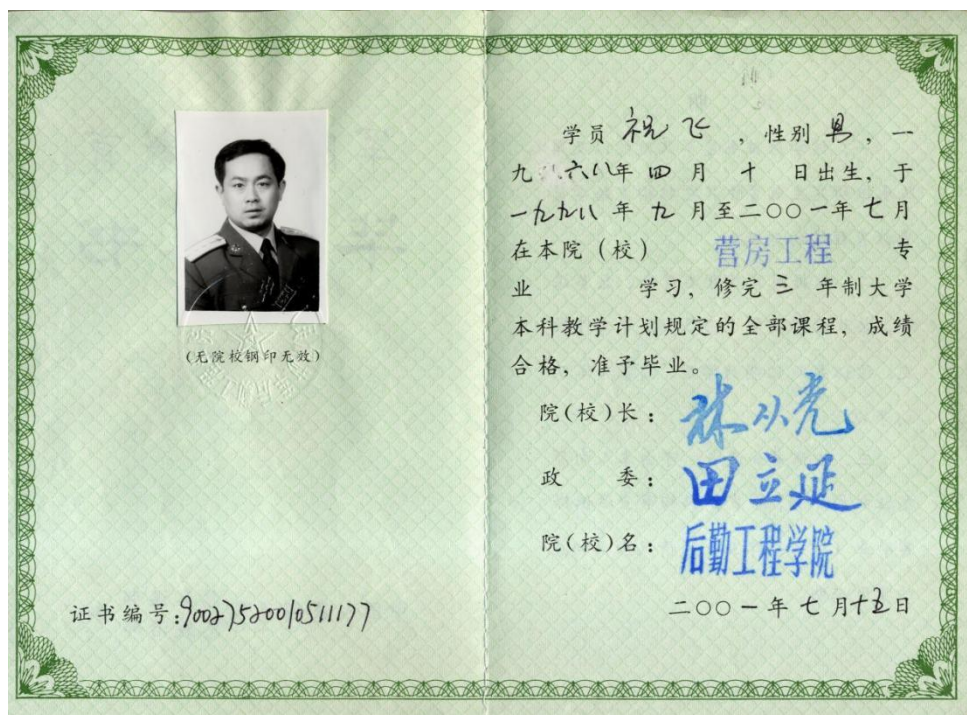 (无院校钢印无效)
证书编号:90027520010511177
学员 祝飞 ，性别 男，一
九六八年 四 月 十 日出生，于
一九九八 年 九 月至二〇〇一年 七 月
在本院（校） 营房工程 专
业 学习，修完 三 年制大学
本科教学计划规定的全部课程，成绩
合格，准予毕业。
院(校)长： 林从虎
政 委： 田立延
院(校)名： 后勤工程学院
二〇〇一年 七 月十五日